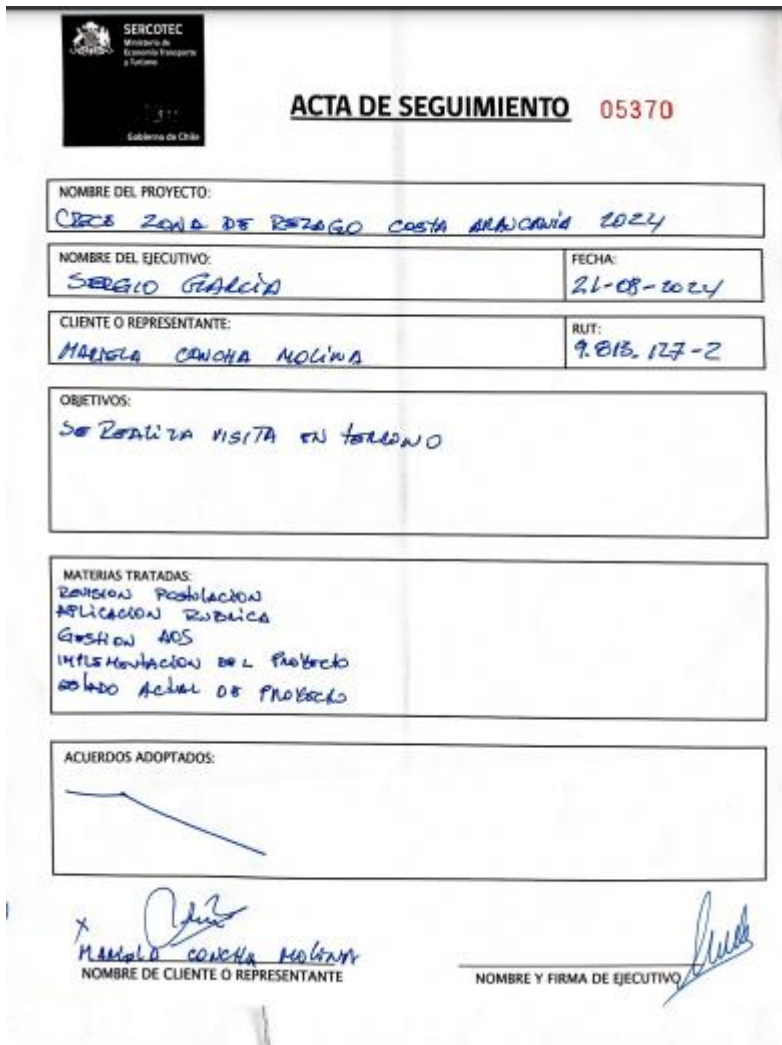 SERCOTEC
Ministerio de
Economía Transporte
y Turismo
Gobierno de Chile
ACTA DE SEGUIMIENTO 05370
NOMBRE DEL PROYECTO:
CRECE ZONA DE REZAGO COSTA ARAUCANÍA 2024
NOMBRE DEL EJECUTIVO:
SERGIO GARCÍA
FECHA:
21-08-2024
CLIENTE O REPRESENTANTE:
MARIELA CONCHA MOLINA
RUT:
9.813.127-2
OBJETIVOS:
SE REALIZA VISITA EN TERRENO
MATERIAS TRATADAS:
REVISION POSTULACION
APLICACION RUBRICA
GESTION AOS
IMPLEMENTACION DEL PROYECTO
ESTADO ACTUAL DE PROYECTO
ACUERDOS ADOPTADOS:
X
MARIELA CONCHA MOLINA
NOMBRE DE CLIENTE O REPRESENTANTE
NOMBRE Y FIRMA DE EJECUTIVO